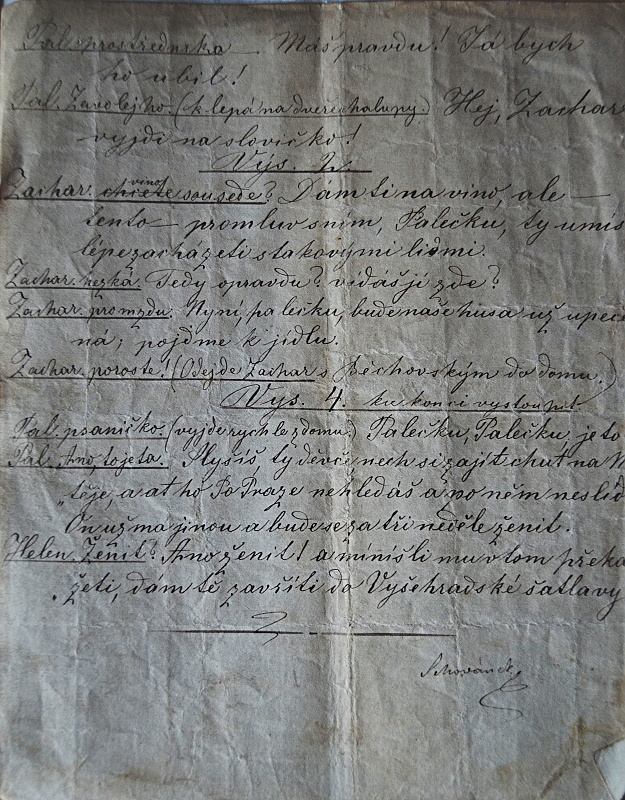 Pal. prostředníka Máš pravdu! Já bych
ho ubil!
Pal. Zavolej ho. (klepá na dveře chalupy.) Hej, Zachar
vyjdi na slovíčko!
Výs. 2.
vino
Zachar. chcete sousede? Dám ti na vino, ale
tento promluv s ním, Palečku, ty umíš
lépe zacházeti s takovými lidmi.
Zachar. hezká. Tedy opravdu? vídáš jí zde?
Zachar. promzdu. Nyní, palečku, bude naše husa už upeče
ná; pojďme k jídlu.
Zachar. poroste! (Odejde Zachar s Běchovským do domu.)
Výs. 4 ku konci vystoupí.
Pal. psaníčko. (vyjde rychle z domu.) Palečku, Palečku, je to
Pal. Ano, to je ta. Slyšíš, ty děvče, nech si zajít chuť na
těje, a ať ho Po Praze nehledáš a po něm neslíd
On už ma jinou a bude se za tři neděle ženit.
Helen. Ženit? Ano ženit! a míníš li mu v tom překa
žeti, dám tě zavříti do Vyšehradské šatlavy